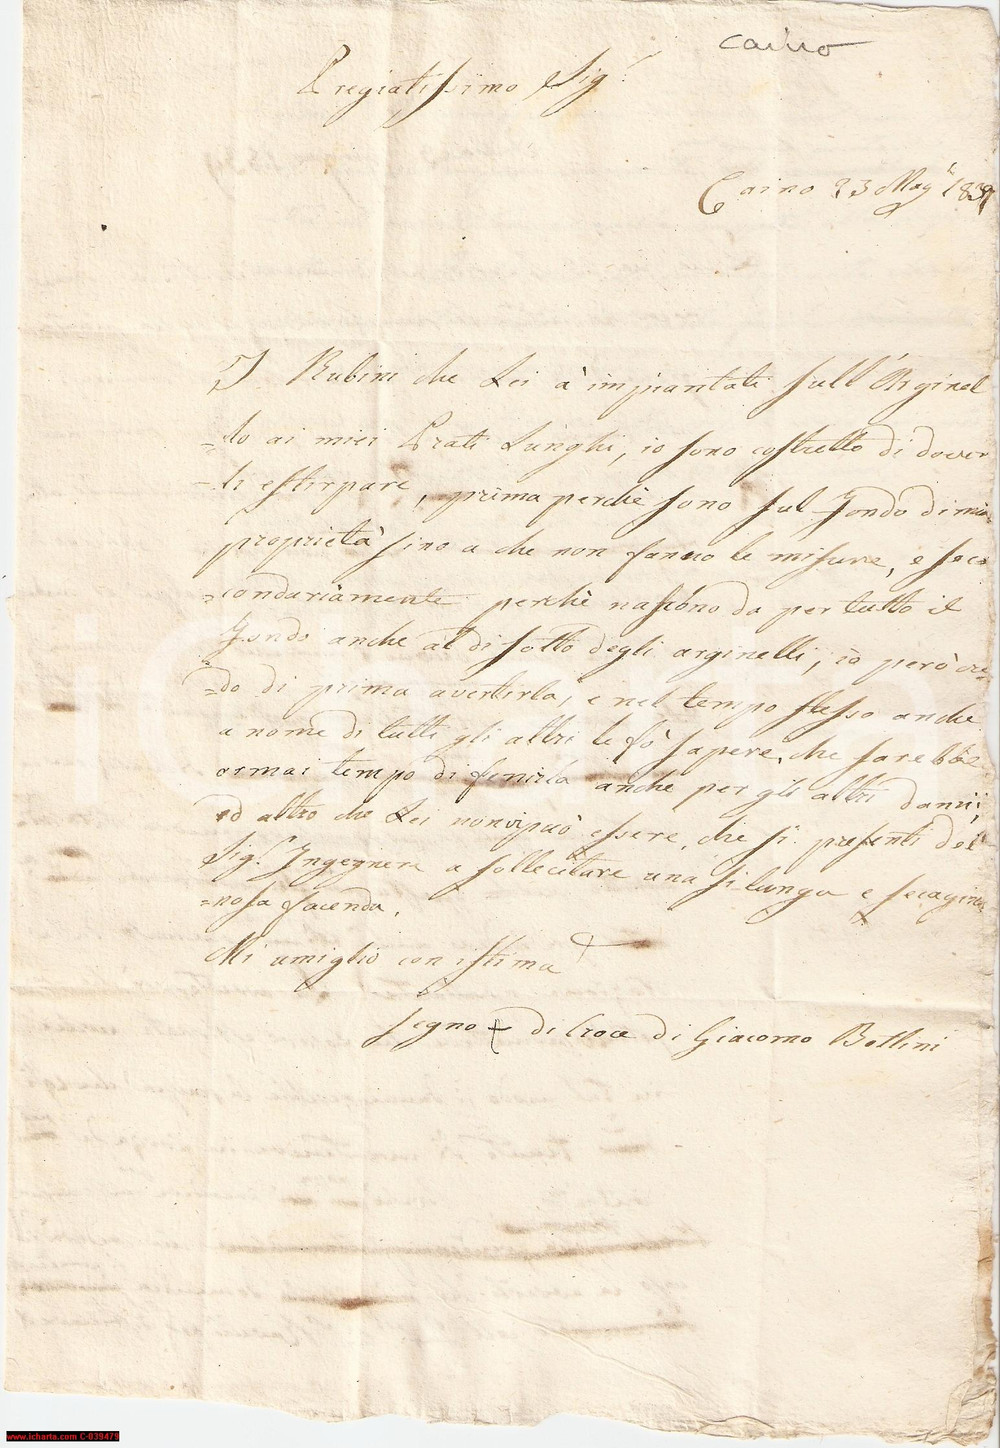 caino
Pregiatissimo Sig.r
Caino 23 Mag.o 1839
I Rubini che Lei à impiantati sull'Arginel
=lo ai miei Prati Lunghi, io sono costretto di dover
=li estirpare, prima perchè sono sul Fondo di mia
proprietà sino a che non fanno le misure, e seco
=condariamente perchè nascono da per tutto il
Fondo anche al di sotto degli arginelli; io però cre=
=do di prima avertirla, e nel tempo stesso anche
a nome di tutti gli altri le fò sapere, che sarebbe
ormai tempo di fenirla anche per gli altri danni;
ed altro che Lei non vi può essere, che si presenti dal
Sig.r Ingegnere a sollecitare una si lunga e secagino=
=nosa facenda.
Mi umiglio con istima
segno + di Croce di Giacomo Bollini
www.icharta.com C-039479